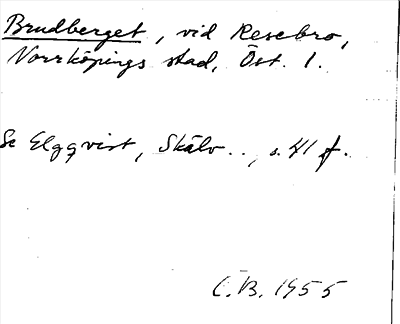 Brudberget, vid Resebro,
Norrköpings stad, Öst. l.
Se Elgqvist, Skälv.., s. 41 f.
C.B. 1955